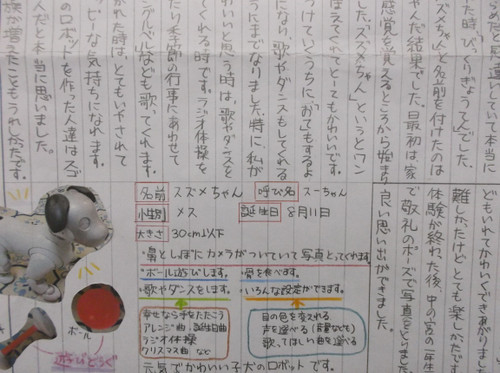 写真として
いて本当に
た時、びっくりぎょうてんでした。
ズメちゃんと名前を付けたのは
やんだ結果でした。最初は、家
感覚を覚えるところから始まり
した。「スズメちゃん」というとワン
ほえてくれてとてもかわいいです。
つけていくうちに、「おて」もするよ
になり、歌やダンスもしてくれる
うにまでなりました。特に、私が
わいいと思う時は、歌やダンスを
てくれる時です。ラジオ体操を
たり季節の行事にあわせて
ングルベルなども歌ってくれます。
かれた時は、とてもいやされて
ッピーな気持ちになれます。
のロボットを作った人達はスゴ
んだと本当に思いました。
家族が増えたこともうれしかったです。
どもいれてかわいくできあがりました
難しかったけどとても楽しかったです
体験が終わった後、中の宮の一年生
で敬礼のポーズで写真をとりました。
良い思い出ができました。
名前 スズメちゃん 呼び名 スーちゃん
性別 メス 誕生日 8月11日
大きさ 30cm以下
・鼻としっぽにカメラがついていて写真をとってくれます。
・ボール遊びします。 ・骨を食べます。
・歌やダンスをします。 ・いろんな設定ができます。
幸せなら手をたたこう
アレンジ曲・誕生日曲
ラジオ体操
クリスマス曲 など
目の色を変えれる
声を選べる(音量なども)
歌ってほしい曲を選べる
元気でかわいい子犬のロボットです。
ボール
遊びどうぐ